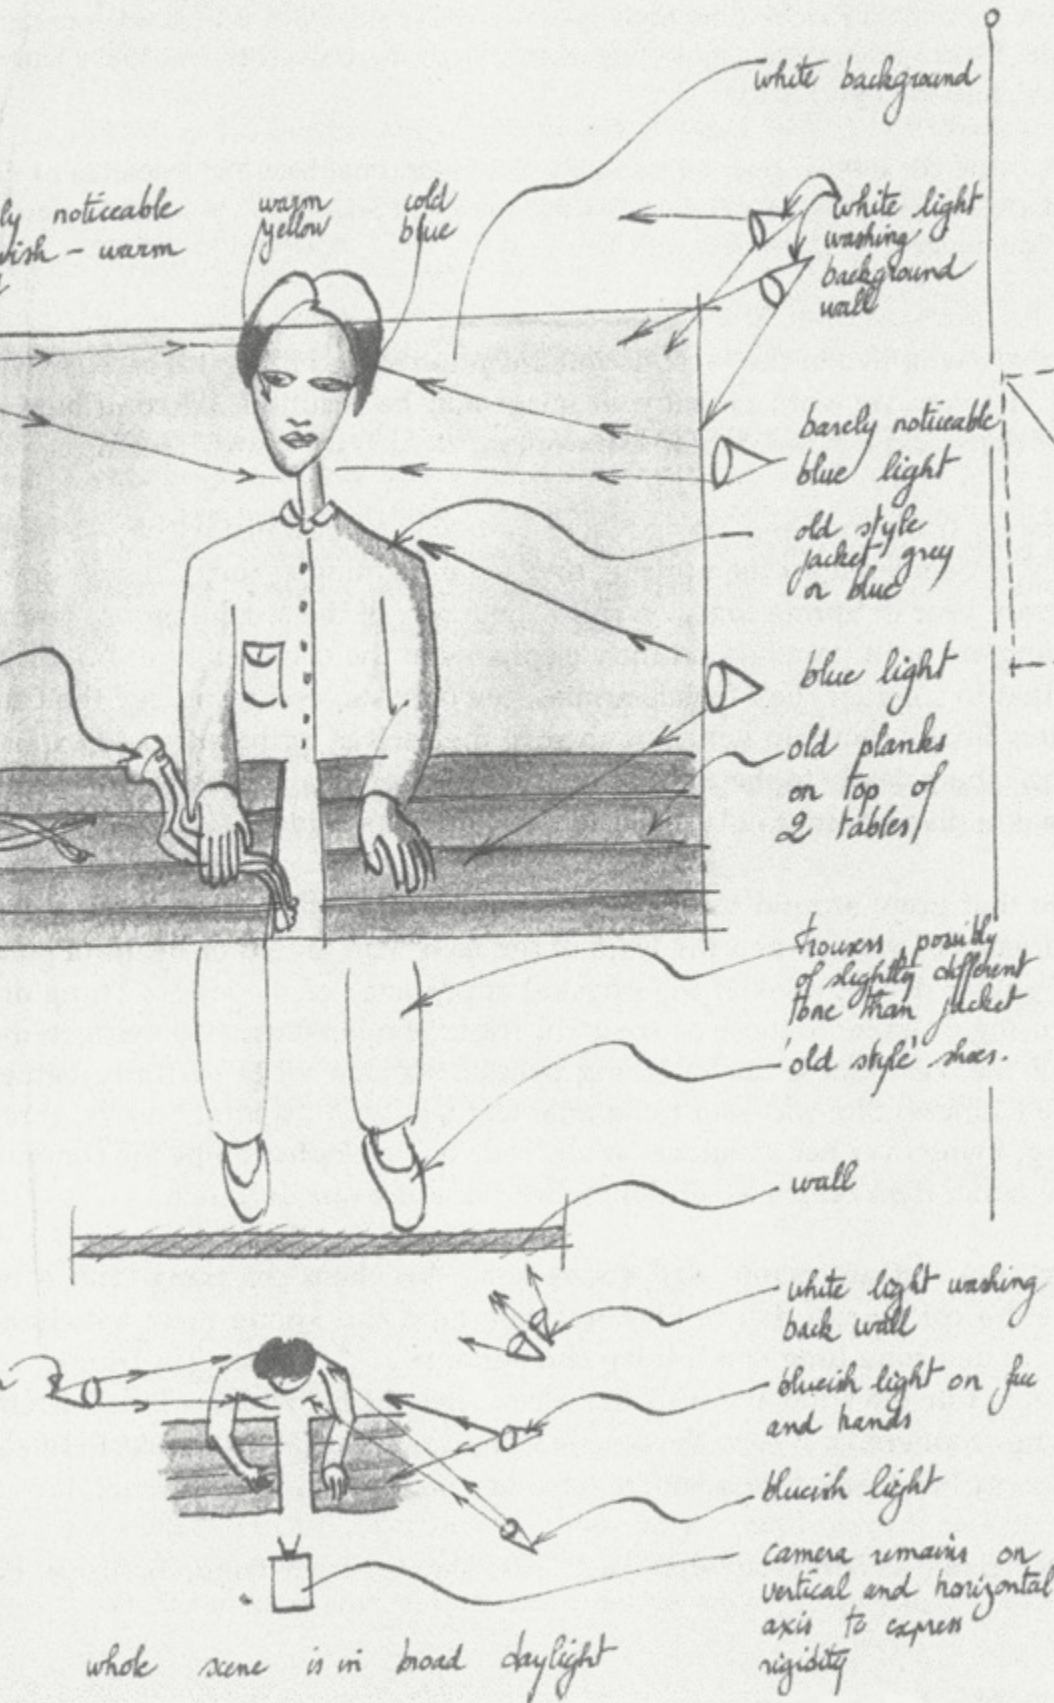 white background
ly noticeable
wish - warm
warm
yellow
cold
blue
white light
washing
background
wall
barely noticeable
blue light
old style
jacket grey
or blue
blue light
old planks
on top of
2 tables
trousers possibly
of slightly different
tone than jacket
'old style' shoes.
wall
white light washing
back wall
blueish light on face
and hands
blueish light
camera remains on
vertical and horizontal
axis to express
rigidity
whole scene is in broad daylight